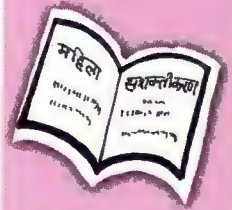 महिला
सशक्तीकरण